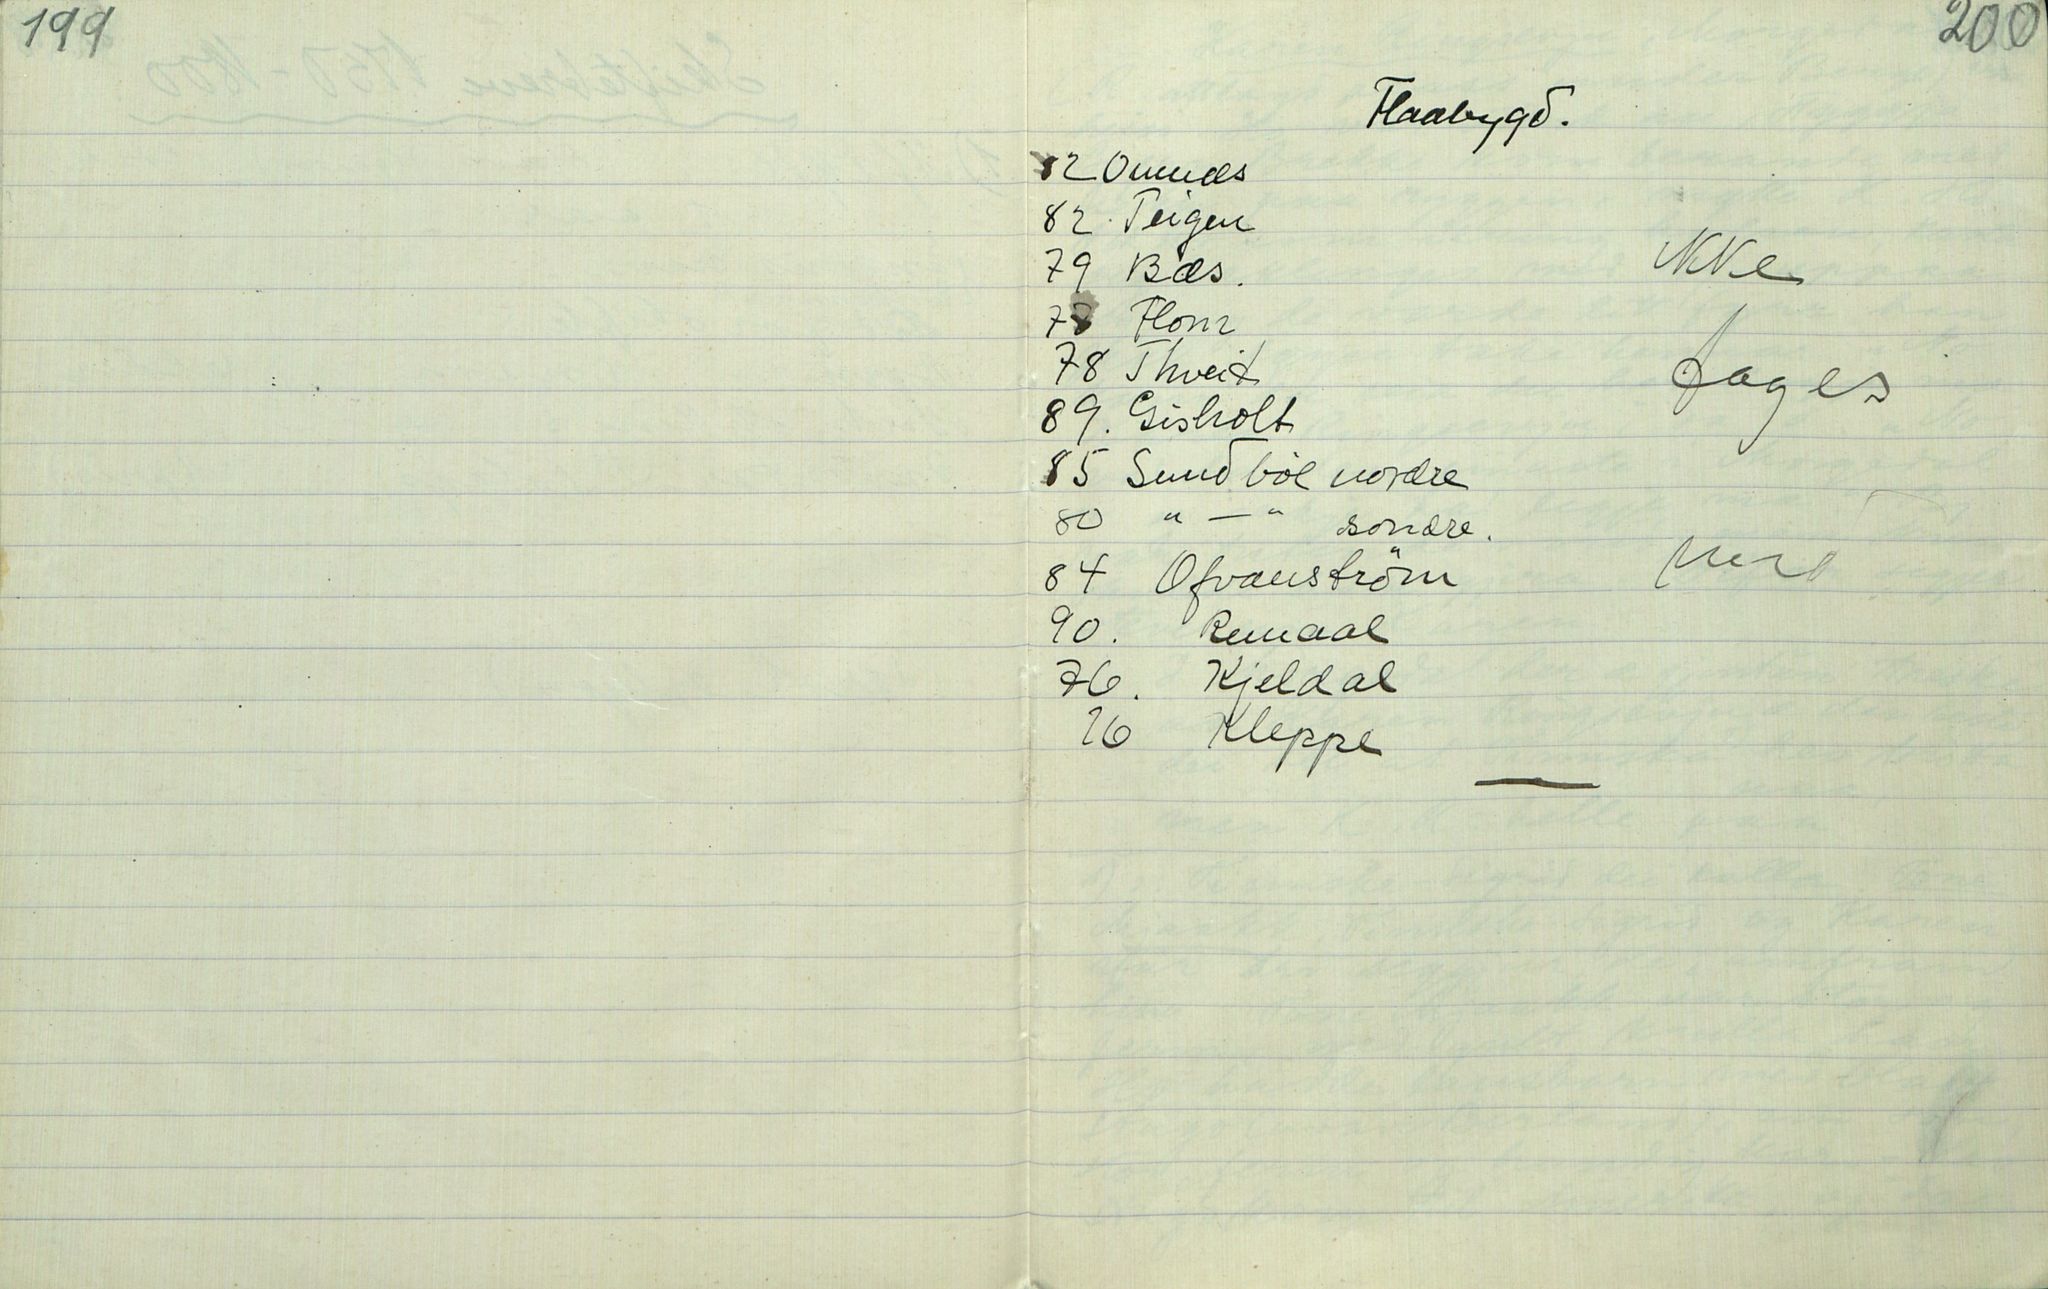 199
200
Flaabygd.
82 Omnæs
82. Teigen
79 Bæs.
78 Flom
78 Thveit
89. Gisholt
85 Sundböl nordre
80 " — " söndre.
84 Ofvanström
90. Remaal
76. Kjeldal
76 Kleppe
ikke
tages
med